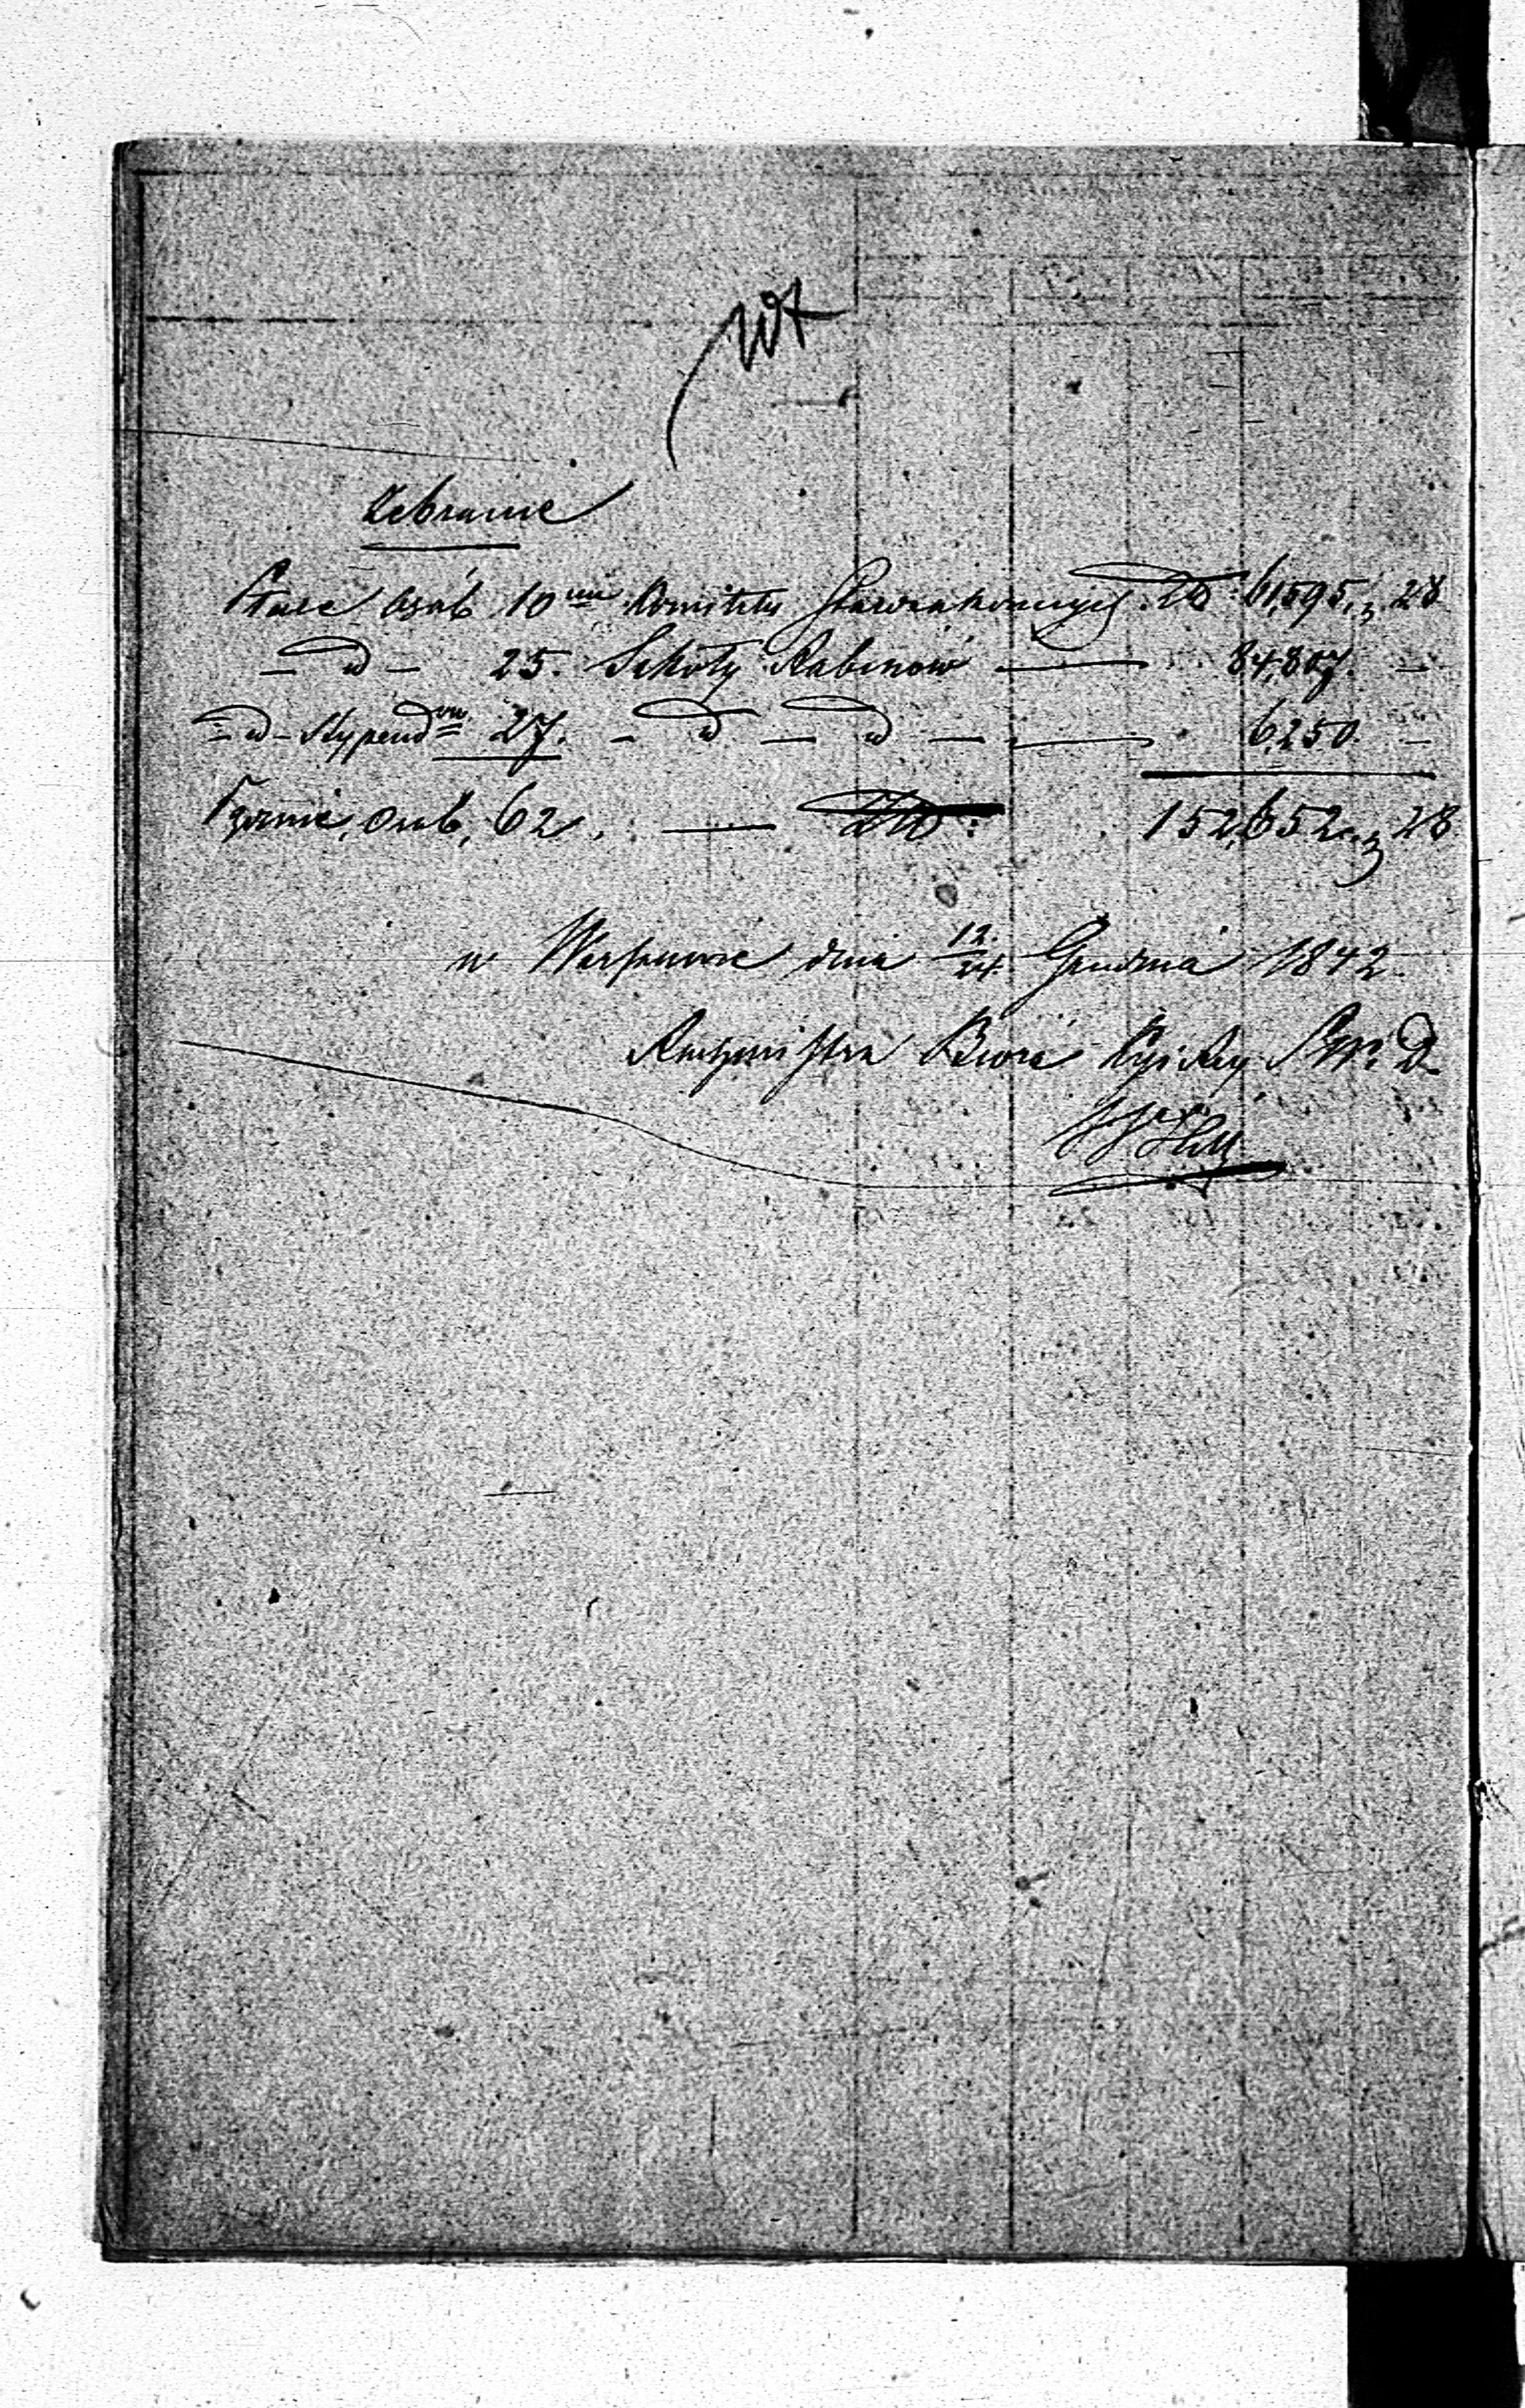 Zebranie
Płace osób 10ciu Komitetu Starozakonnych Złp: 61,595 „ 28
— d — 25. Szkoły Rabinów — 84,807. —
— d — Stypendów 27. — d — d — 6,250 —
Ogólnie, osób, 62. — Złp: 152,652 „ 28
w Warszawie dnia 12/24 Grudnia 1842
Biura